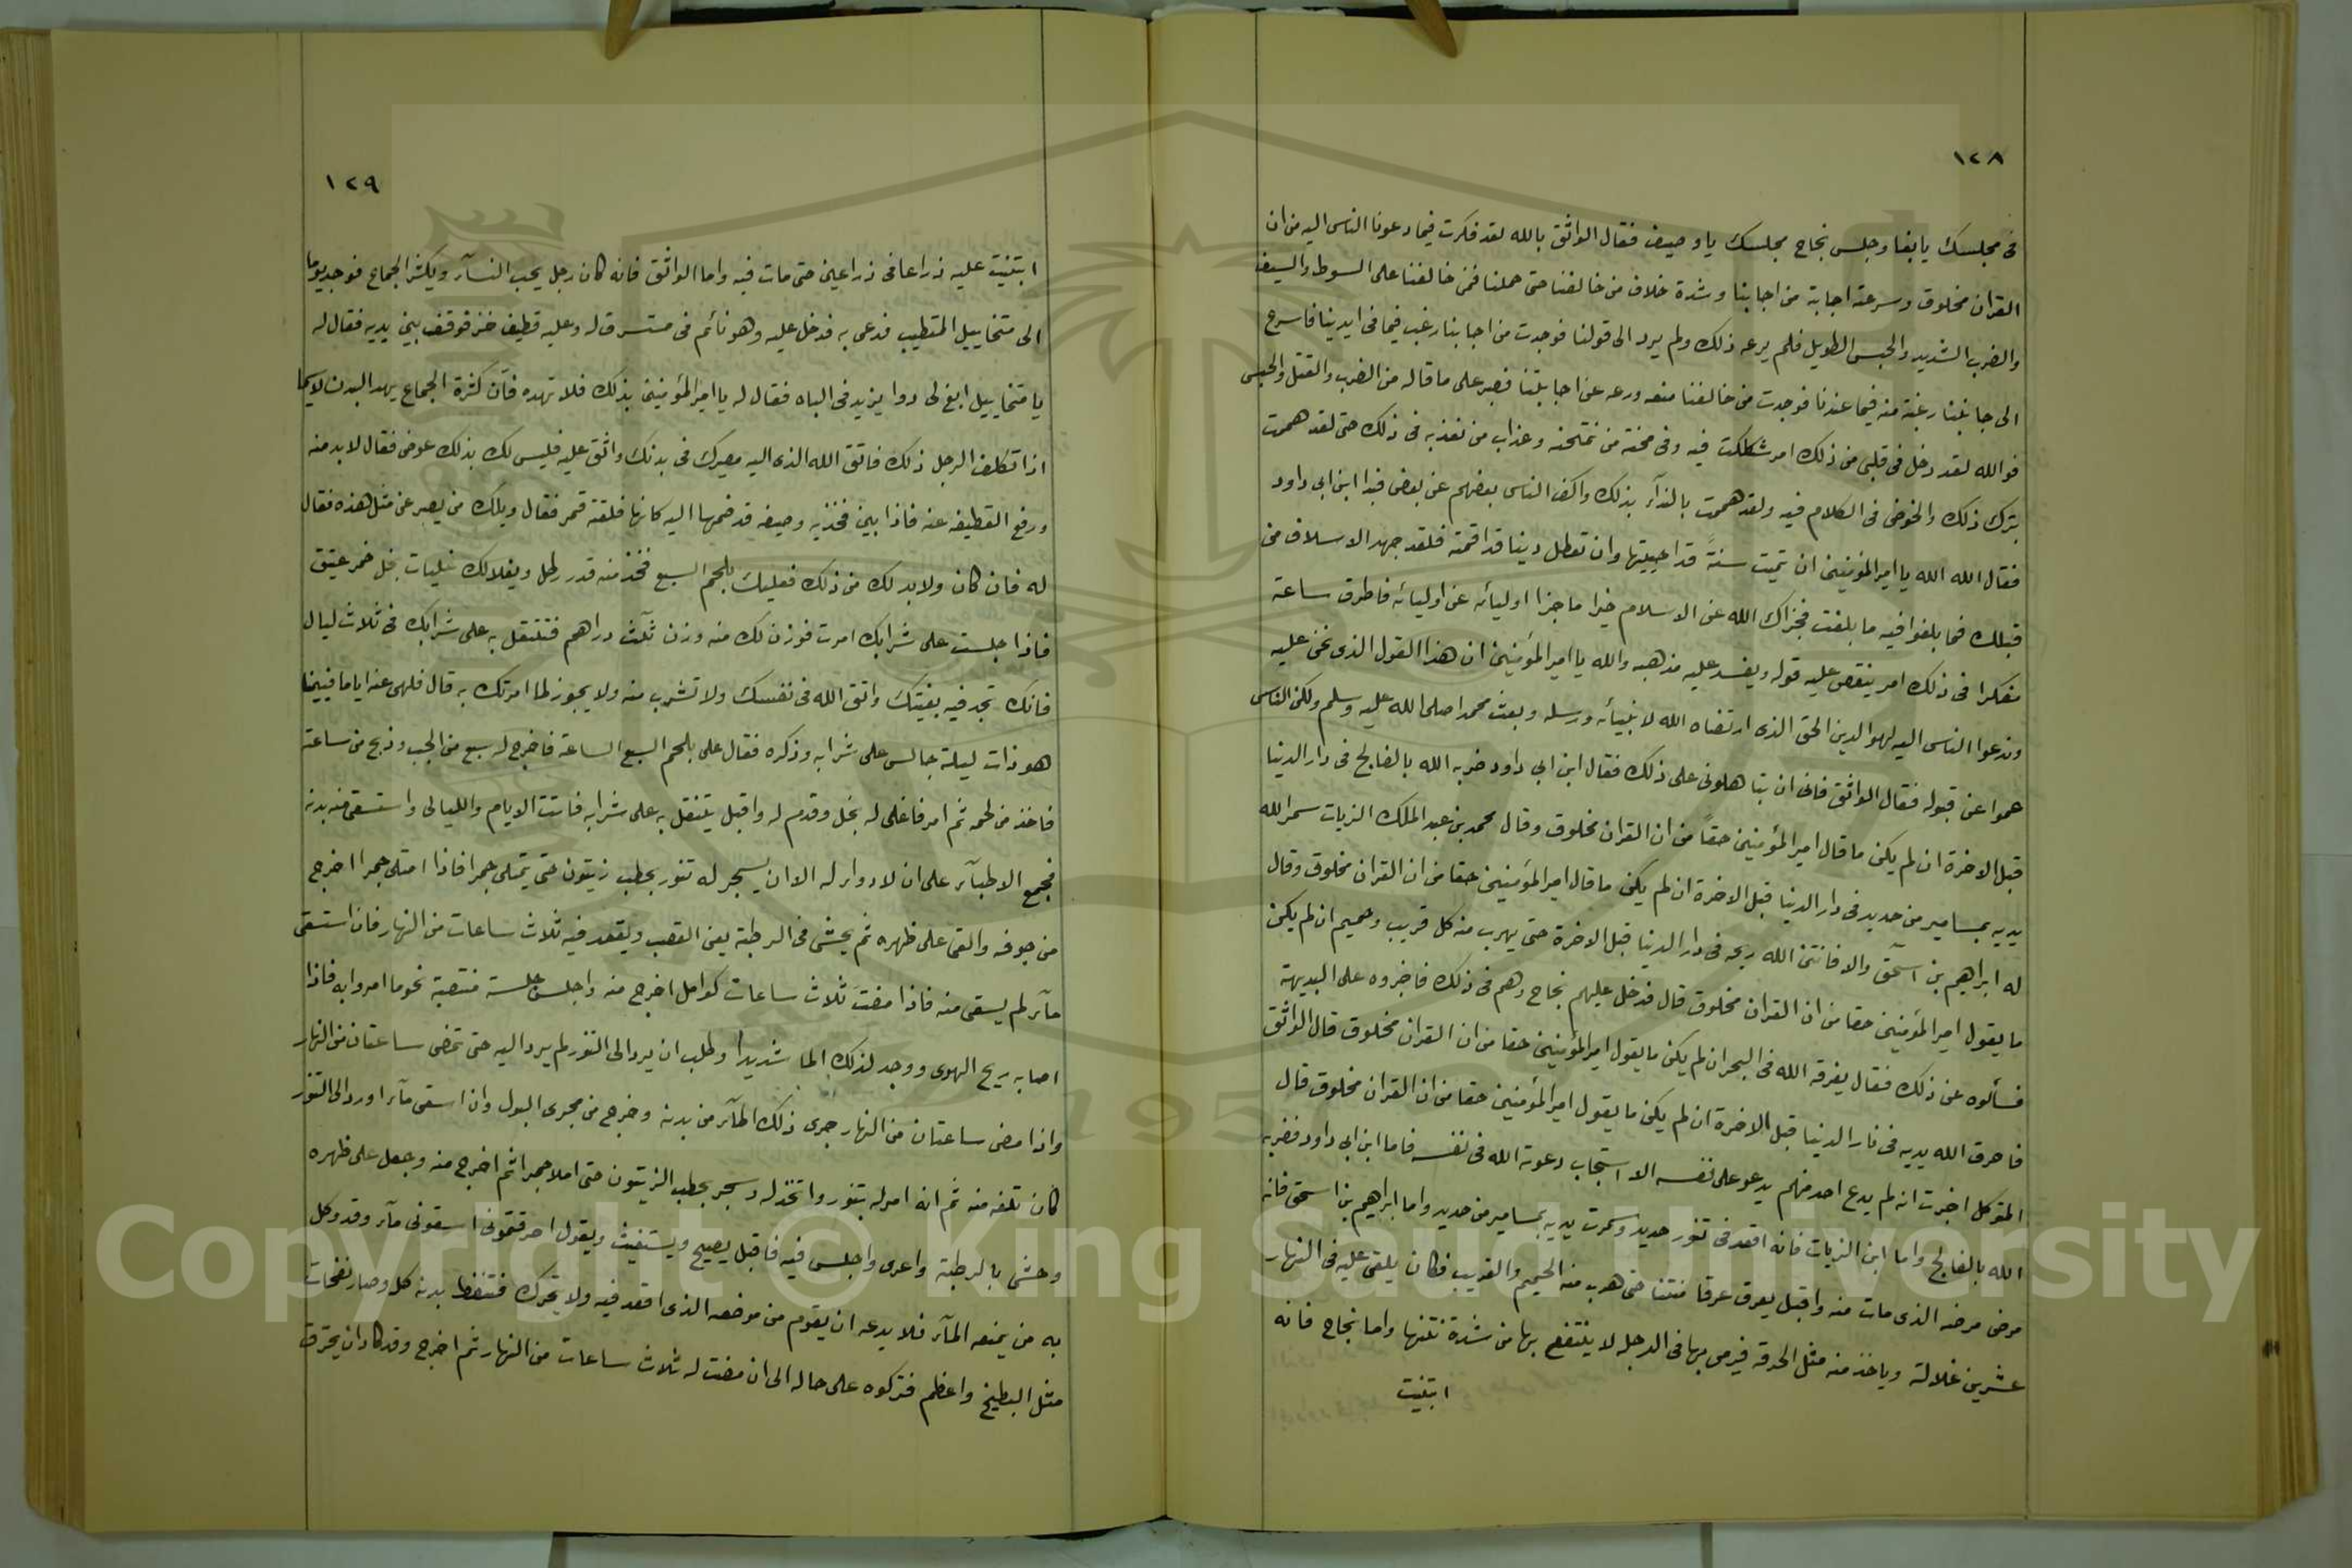 ١٢٨
فى مجلسك يا بغا وجلس نجاح مجلسك يا وصيف فقال الواثق بالله لقد فكرت فيما دعونا الناس اليه من ان
القران مخلوق وسرعة اجابة من اجابنا وشدة خلاف من خالفنا حتى حملنا فمن خالفنا على السوط والسيف
والضرب الشديد والحبس الطويل فلم يرعه ذلك ولم يرد الى قولنا فوجدت من اجابنا رغب فيما فى ايدينا فاسرع
الى جابتنا رغبة منه فيما عندنا فوجدت من خالفنا منعه ورعه عن اجابتنا فصبر على ما قاله من الضرب والقتل والحبس
فوالله لقد دخل فى قلبى من ذلك امر شككت فيه وفى محنة من نمتحنه وعذاب من نعذبه فى ذلك حتى لقد هممت
بترك ذلك والخوض فى الكلام فيه ولقد هممت بالندآء بذلك واكف الناس بعضهم عن بعض فبدا ابن ابى داود
فقال الله الله يا امير المؤمنين ان تميت سنةً قد احييتها وان تعطل دينا قد اقمته فلقد جهد الاسلاف من
قبلك فما بلغوا فيه ما بلغت فجزاك الله عن الاسلام خيرا ما جزا اوليائه عن اوليائه فاطرق ساعة
مفكرا فى ذلك امر ينقص عليه قوله ويفسد عليه مذهبه والله يا امير المؤمنين ان هذا القول الذى نحن عليه
وندعوا الناس اليه لهو الدين الحق الذى ارتضاه الله لانبيائه ورسله وبعث محمدا صلى الله عليه وسلم ولكن الناس
عموا عن قبوله فقال الواثق فانى ان تباهلونى على ذلك فقال ابن ابى داود ضربه الله بالفالج فى دار الدنيا
قبل الاخرة ان لم يكن ما قال امير المؤمنين حقاً من ان القران مخلوق وقال محمد بن عبد الملك الزيات سمر الله
يديه بمسامير من حديد فى دار الدنيا قبل الاخرة ان لم يكن ما قال امير المؤمنين حقا من ان القران مخلوق وقال
له ابراهيم بن اسحق والا فانتن الله ريحه فى دار الدنيا قبل الاخرة حتى يهرب منه كل قريب وحميم ان لم يكن
ما يقول امير المؤمنين حقا من ان القران مخلوق قال فدخل عليهم نجاح وهم فى ذلك فاخبروه على البديهة
فسألوه عن ذلك فقال يغرقه الله فى البحر ان لم يكن ما يقول امير المؤمنين حقا من ان القران مخلوق قال الواثق
فاحرق الله يديه فى نار الدنيا قبل الاخرة ان لم يكن ما يقول امير المؤمنين حقا من ان القران مخلوق قال
المتوكل اخبرت انه لم يدع احد منهم يدعو على نفسه الا استجاب دعوته الله فى نفسه فاما ابن ابى داود فضربه
الله بالفالج واما ابن الزيات فانه اقعد فى تنور حديد وسمرت يديه بمسامير من حديد واما ابراهيم بن اسحق فانه
مرض مرضه الذى مات منه واقبل يعرق عرقا منتنا حتى هرب منه الحميم والقريب فكان يلقى عليه فى النهار
عشرين غلالة وياخذ منه مثل الخرقه فيرمى بها فى الدجلة لا ينتفع بها من شدة نتنها واما نجاح فانه
ابتنيت
١٢٩
ابتنيت عليه ذراعا فى ذراعين حتى مات فيه واما الواثق فانه كان رجل يحب النسآء ويكثر الجماع فوجد يوما
الى متخاييل المتطبب فدعى به فدخل عليه وهو نائم فى مستسرق له وعليه قطيف خز فوقف بين يديه فقال له
يا متخاييل ابغ لى دوا يزيد فى الباه فقال له يا امير المؤمنين بذلك فلا تهده فآن كثرة الجماع يهد البدن لاسيما
اذا تكلف الرجل ذلك فاتق الله الذى اليه مصيرك فى بدنك واثق عليه فليس لك بذلك عوض فقال لا بد منه
ورفع القطيفه عنه فاذا بين فخذيه وصيفه قد ضمها اليه كانها فلقة قمر فقال ويلك من يصبر عن مثل هذه فقال
له فان كان ولا بد لك من ذلك فعليك بلحم السبع فخذ منه قدر رطل ويغلا لك غليات بخل خمر عتيق
فاذا جلست على شرابك امرت فوزن لك منه وزن ثلث دراهم فتتنقل به على شرابك فى ثلاث ليال
فانك تجد فيه بغيتك واتق الله فى نفسك ولا تشرب منه ولا يجوز لما امرتك به قال فلهى عنه اياما فبينما
هو ذات ليلة جالس على شرابه وذكره فقال على بلحم السبع الساعة فاخرج له سبع من الجب وذبح من ساعة
فاخذ من لحمه ثم امر فاغلى له بخل وقدم له واقبل يتنقل به على شرابه فاتت الايام والليالى واستسقى منه بدنه
فجمع الاطبآء على ان لا دواء له الا ان يسجر له تنور بحطب زيتون حتى يمتلى جمرا فاذا امتلى جمرا اخرج
من جوفه والقى على ظهره ثم يحشى فى الرطبة يعنى القصب ويقعد فيه ثلاث ساعات من النهار فان استسقى
مآء لم يسقى منه فاذا مضت ثلاث ساعات كوامل اخرج منه واجلس جلسة منتصبة نحو ما امروا به فاذا
اصابه ريح الهوى ووجد لذلك الما شديدا وطلب ان يرد الى التنور لم يرد اليه حتى تمضى ساعتان من النهار
واذا مضى ساعتان من النهار جرى ذلك المآء من بدنه وخرج من مجرى البول وان اسقى مآء او رد الى التنور
كان تلفه منه ثم انه امر له بتنور واتخذ له وسجر بحطب الزيتون حتى املا جمرا ثم اخرج منه وجعل على ظهره
وحشى بالرطبة واعرى واجلس فيه فاقبل يصيح ويستغيث ويقول احرقتمونى اسقونى مآء وقد وكل
به من يمنعه المآء فلا يدعه ان يقوم من موضعه الذى اقعد فيه ولا يتحرك فتنفظ بدنه كل وصار نفخات
مثل البطيخ واعظم فتركوه على حاله الى ان مضت له ثلاث ساعات من النهار ثم اخرج وقد كاد ان يحترق
Copyright © King Saud University
1957